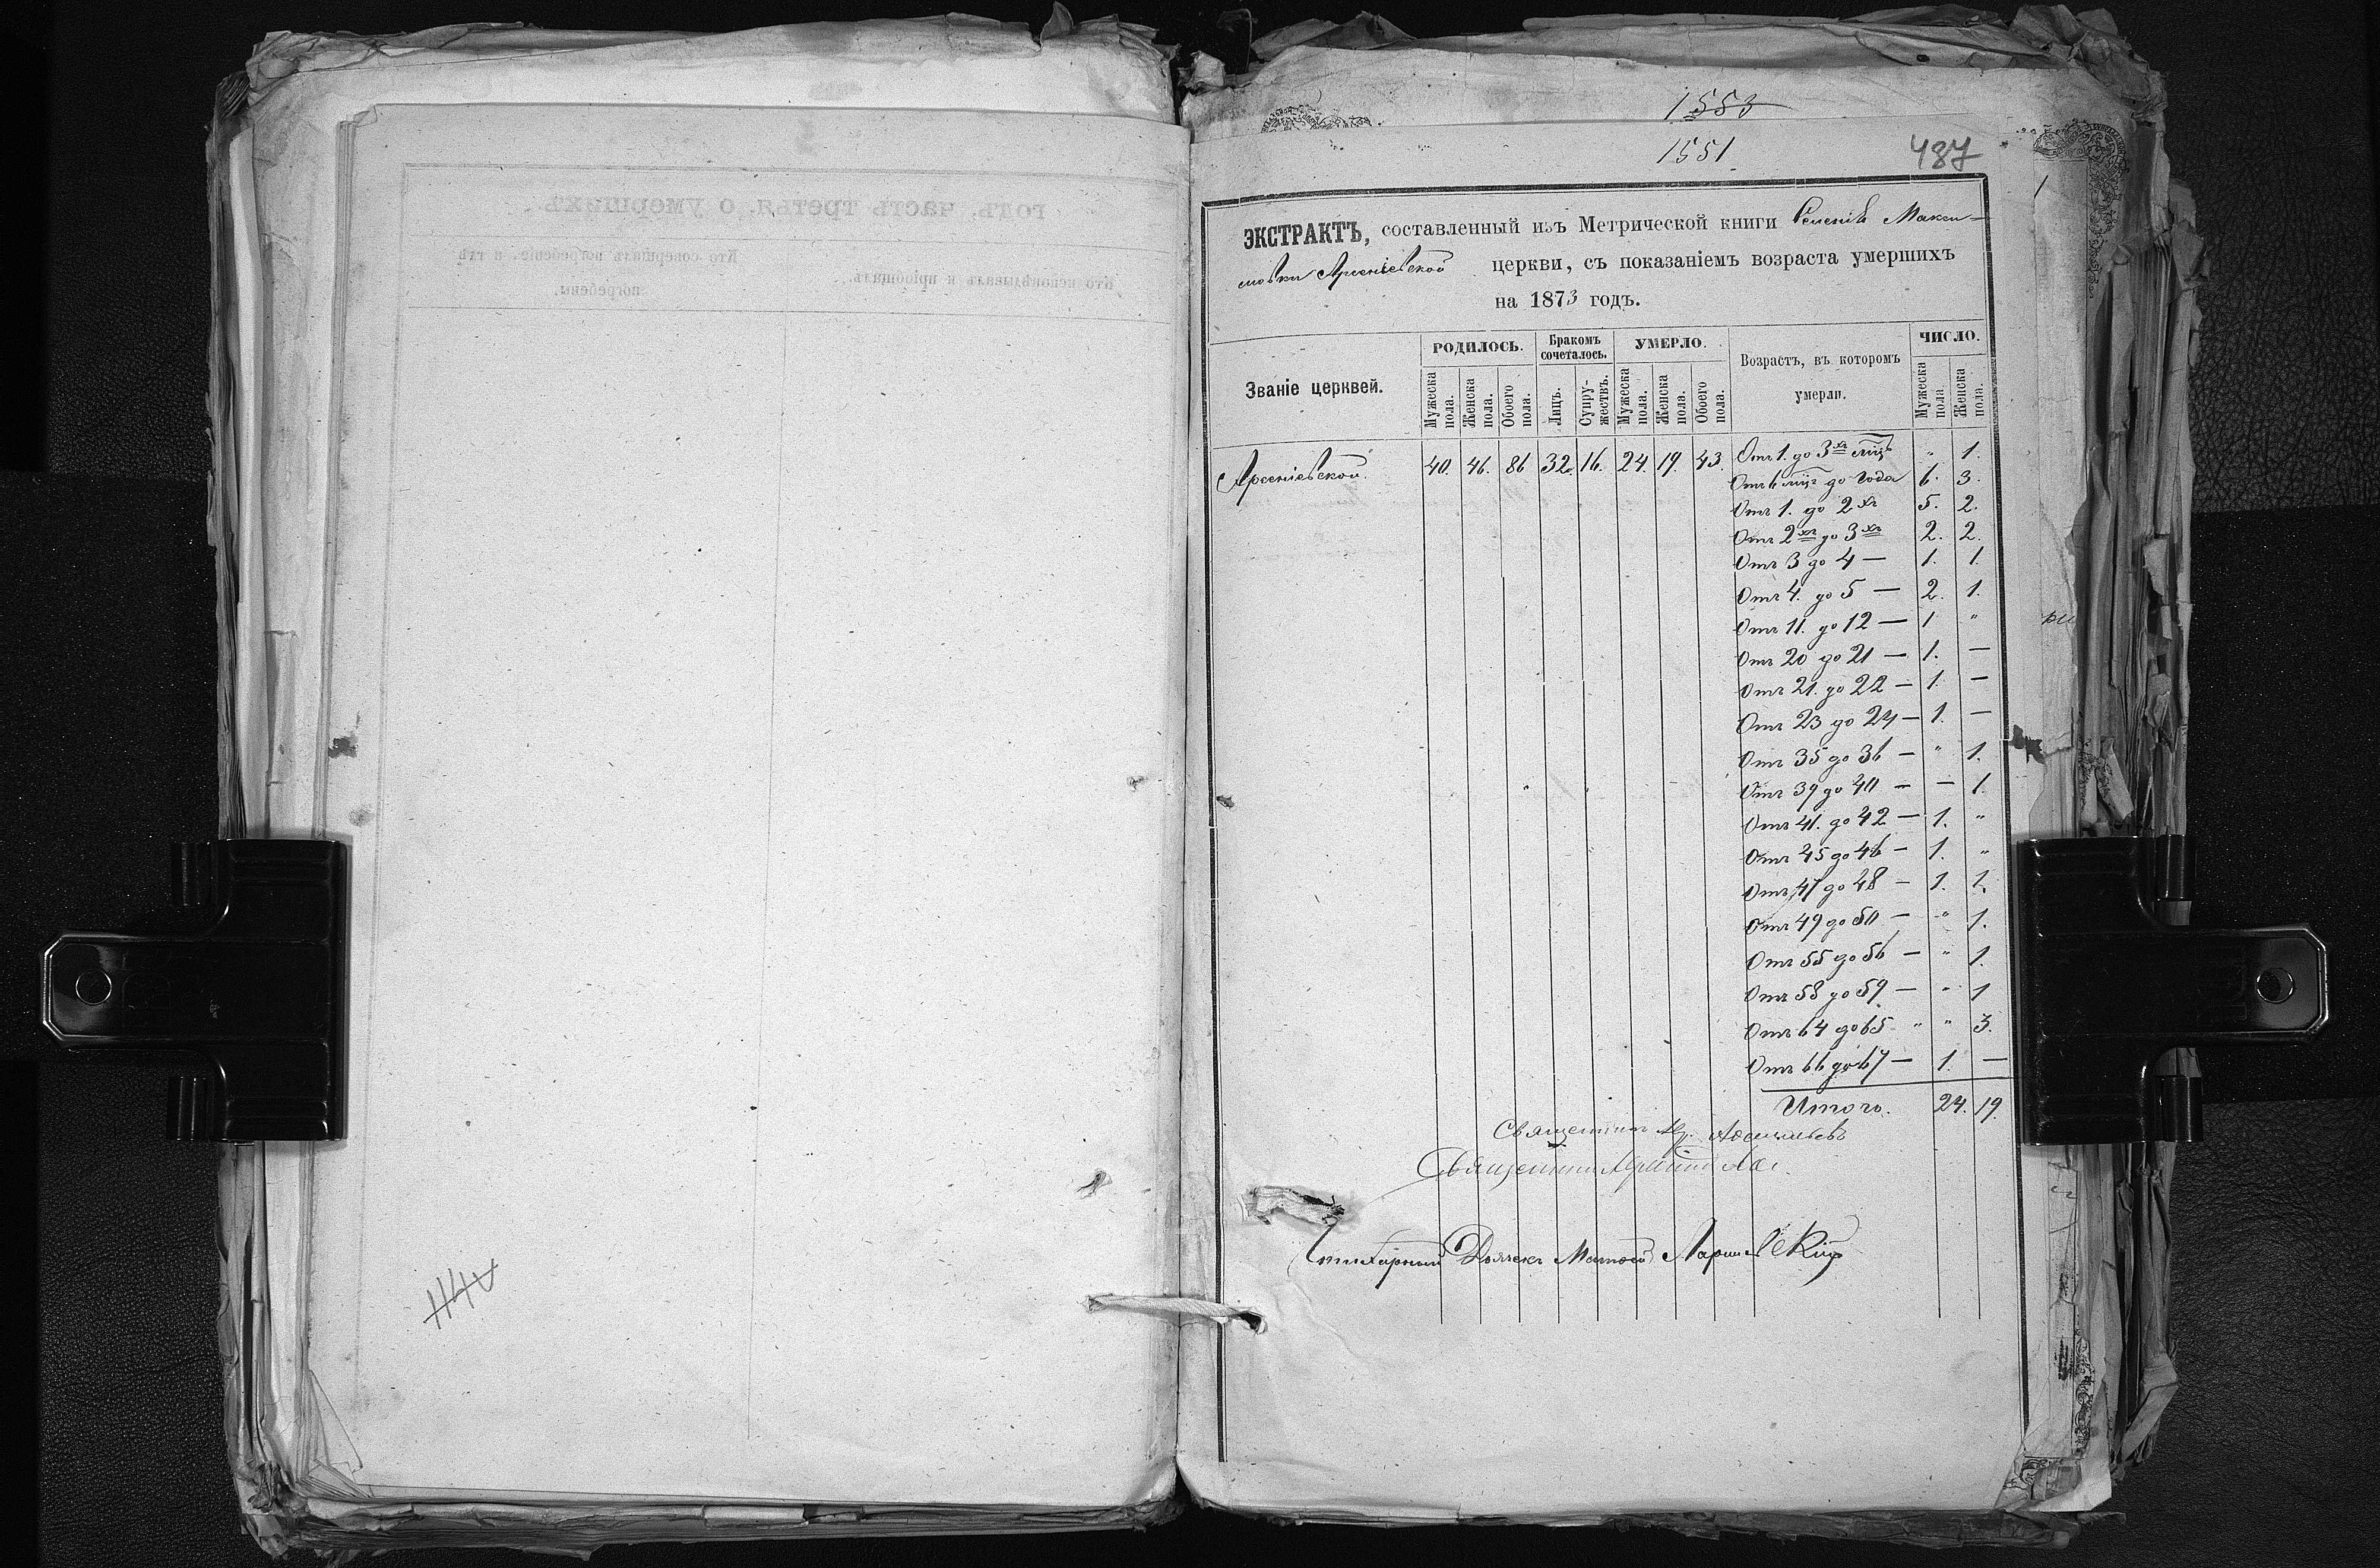 1553
1551
487
ЭКСТРАКТЪ, составленный изъ Метрической книги Селенія Макси-
мовки Арсеніевской церкви, съ показаніемъ возраста умершихъ
на 1873 годъ.
Званіе церквей.
РОДИЛОСЬ.
Мужеска пола.
Женска пола.
Обоего пола.
Бракомъ сочеталось.
Лицъ.
Супру-жествъ.
УМЕРЛО.
Мужеска пола.
Женска пола.
Обоего пола.
Возрастъ, въ которомъ
умерли.
ЧИСЛО.
Мужеска пола.
Женска пола.
Арсеніевской. 40. 46. 86 32. 16. 24. 19. 43. Отъ 1. до 3хъ мцъ " 1.
Отъ 6 мцъ до Года 6. 3.
Отъ 1. до 2хъ 5. 2.
Отъ 2хъ до 3хъ 2. 2.
Отъ 3 до 4 — 1. 1.
Отъ 4. до 5 — 2. 1.
Отъ 11. до 12 — 1 "
Отъ 20 до 21 — 1. —
Отъ 21. до 22 — 1. —
Отъ 23 до 24 — 1. —
Отъ 35 до 36 — " 1.
Отъ 39 до 40 — — 1.
Отъ 41. до 42 — 1. "
Отъ 45 до 46 — 1. "
Отъ 47 до 48 — 1. 1.
Отъ 49 до 50 — " 1.
Отъ 55 до 56 — " 1.
Отъ 58 до 59 — " 1
Отъ 64 до 65 " " 3.
Отъ 66 до 67 — 1. —
Итого. 24. 19.
Священникъ
Священникъ
Стихарный Дьячекъ Матвей
годъ, часть третья, о умершихъ.
Кто исповѣдывалъ и пріобщалъ.
Кто совершалъ погребеніе, и гдѣ
погребены.